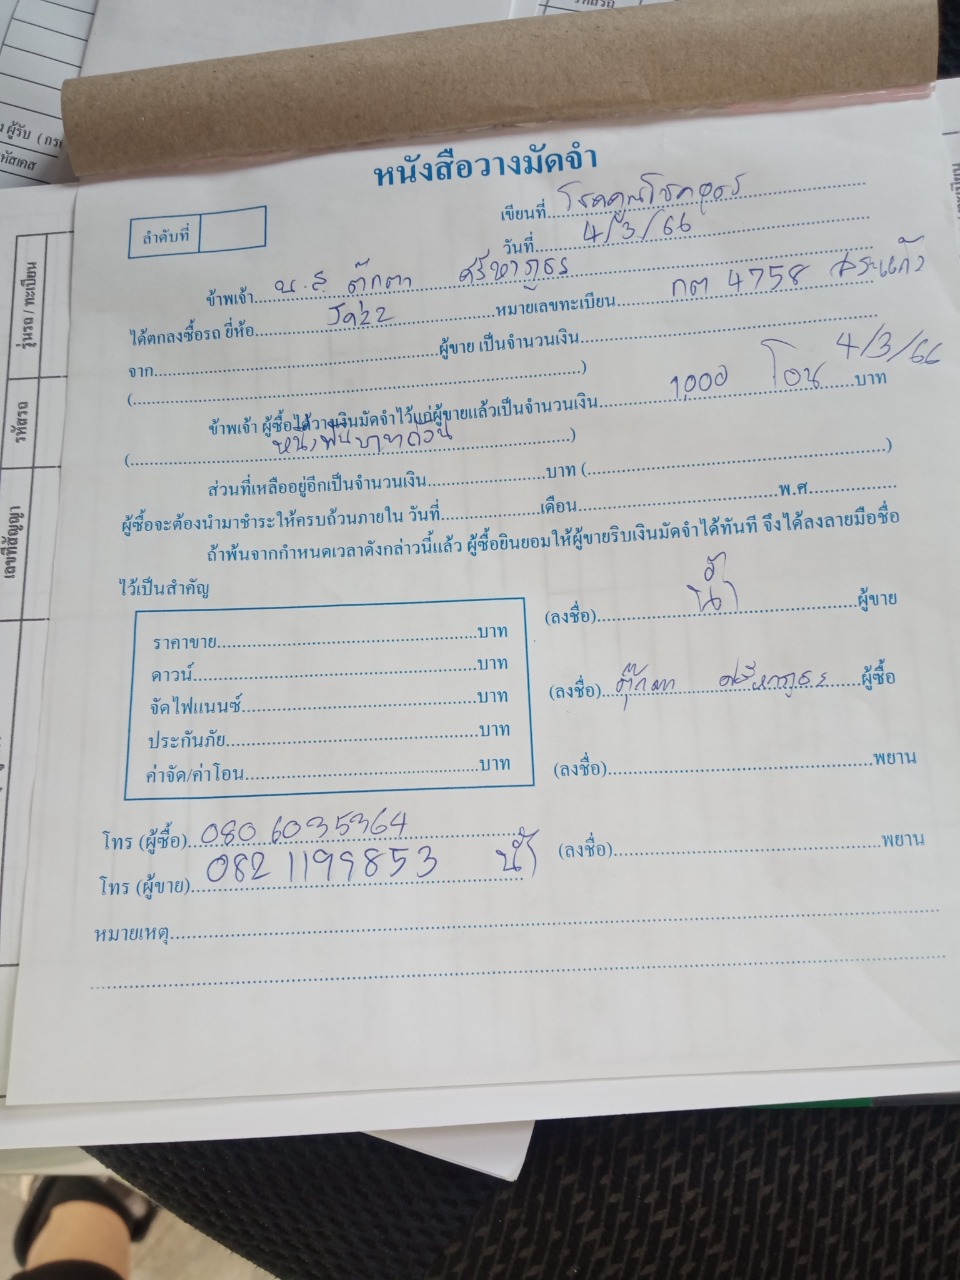 รหัสรถ
ผู้รับ (กรณี
รหัสเคส
รุ่นรถ / ทะเบียน
รหัสรถ
เลขที่สัญญา
หนังสือวางมัดจำ
ลำดับที่
เขียนที่ โชคคูณโชค
วันที่ 4/3/66
ข้าพเจ้า น.ส ตุ๊กตา ศรีหาภูธร
ได้ตกลงซื้อรถ ยี่ห้อ Jazz หมายเลขทะเบียน กต 4758 สระแก้ว
จาก ผู้ขาย เป็นจำนวนเงิน
( )
ข้าพเจ้า ผู้ซื้อได้วางเงินมัดจำไว้แก่ผู้ขายแล้วเป็นจำนวนเงิน 1,000 โอน 4/3/66 บาท
( หนึ่งพันบาทถ้วน )
ส่วนที่เหลืออยู่อีกเป็นจำนวนเงิน บาท ( )
ผู้ซื้อจะต้องนำมาชำระให้ครบถ้วนภายใน วันที่ เดือน พ.ศ.
ถ้าพ้นจากกำหนดเวลาดังกล่าวนี้แล้ว ผู้ซื้อยินยอมให้ผู้ขายริบเงินมัดจำได้ทันที จึงได้ลงลายมือชื่อ
ไว้เป็นสำคัญ
ราคาขาย บาท
ดาวน์ บาท
จัดไฟแนนซ์ บาท
ประกันภัย บาท
ค่าจัด/ค่าโอน บาท
(ลงชื่อ) ผู้ขาย
(ลงชื่อ) ตุ๊กตา ศรีหาภูธร ผู้ซื้อ
(ลงชื่อ) พยาน
(ลงชื่อ) พยาน
โทร (ผู้ซื้อ) 080 6035364
โทร (ผู้ขาย) 082 1199853
หมายเหตุ